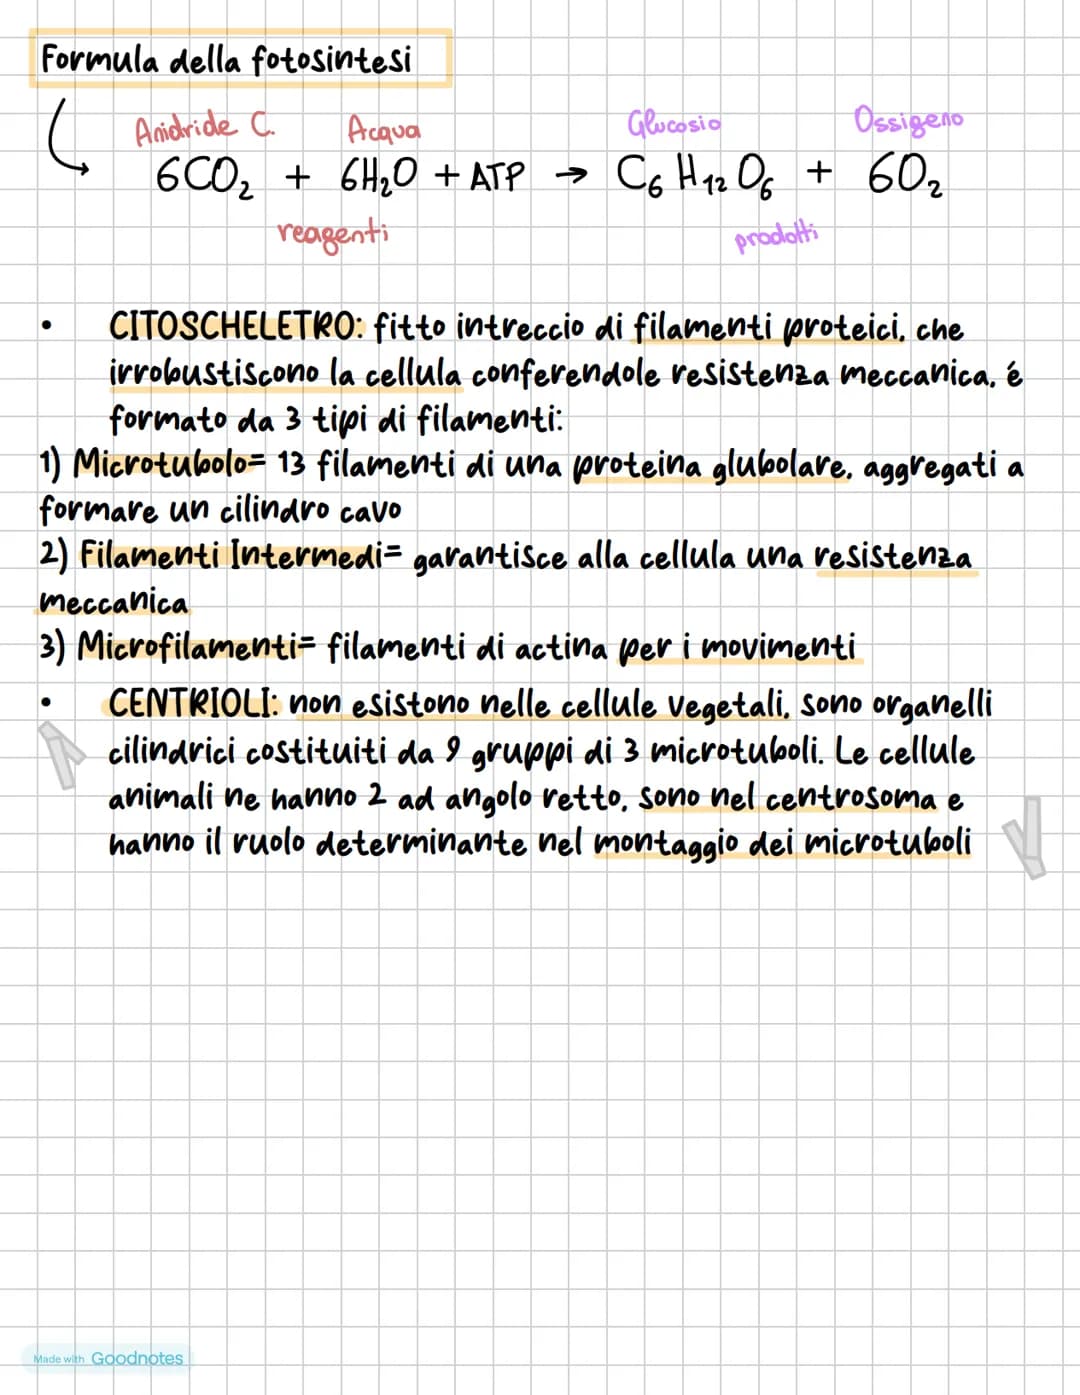 Formula della fotosintesi
Anidride C. Acqua Glucosio Ossigeno
6CO₂ + 6H₂O + ATP → C₆H₁₂O₆ + 6O₂
reagenti prodotti
• CITOSCHELETRO: fitto intreccio di filamenti proteici, che
irrobustiscono la cellula conferendole resistenza meccanica, é
formato da 3 tipi di filamenti:
1) Microtubolo= 13 filamenti di una proteina glubolare, aggregati a
formare un cilindro cavo
2) Filamenti Intermedi= garantisce alla cellula una resistenza
meccanica
3) Microfilamenti= filamenti di actina per i movimenti
• CENTRIOLI: non esistono nelle cellule vegetali, sono organelli
cilindrici costituiti da 9 gruppi di 3 microtuboli. Le cellule
animali ne hanno 2 ad angolo retto, sono nel centrosoma e
hanno il ruolo determinante nel montaggio dei microtuboli
Made with Goodnotes